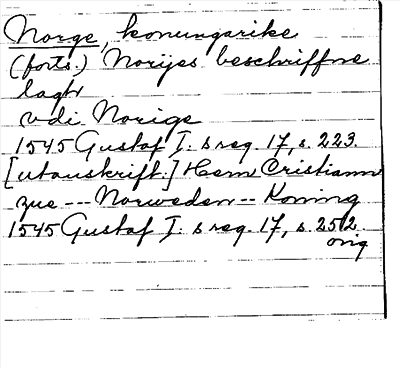 Norge, konungarike
(forts.) Norijes beschriffne
lagh
vdi Norige
1545 Gustaf I:s reg. 17, s. 223.
[utanskrift.] Hern Cristiann
zue --- Norweden -- Koning
1545 Gustaf I:s reg. 17, s. 252.
orig